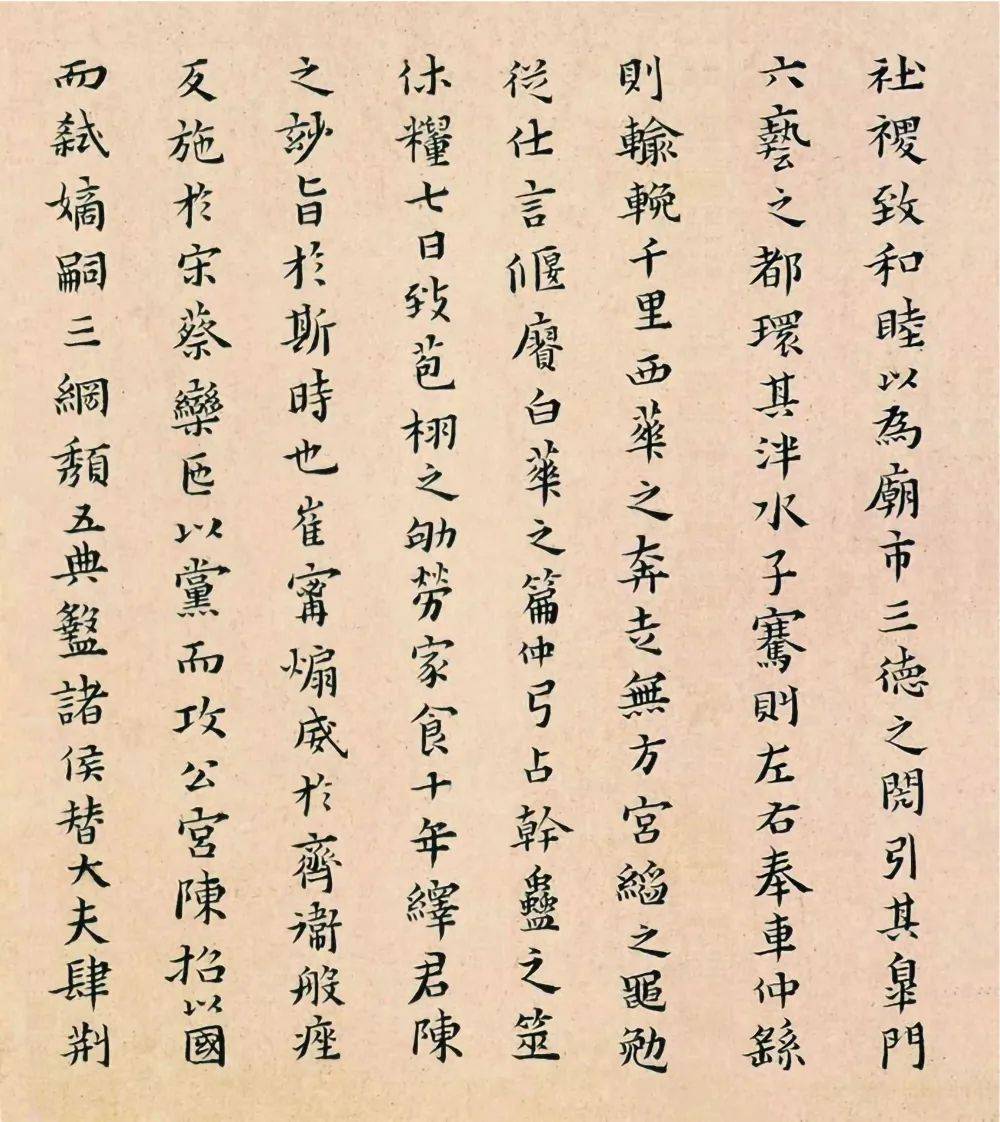 社稷致和睦以為廟市三德之閌引其皐門
六藝之都環其泮水子騫則左右奉車仲繇
則輸輓千里西華之奔走無方宮縚之黽勉
從仕言偃賡白華之篇仲弓占幹蠱之筮
休糧七日致苞栩之劬勞家食十年繹君陳
之玅旨於斯時也崔甯煽威於齊衞般痤
反施於宋蔡欒以黨而攻公宮陳招以國
而弑嫡嗣三綱頽五典盭諸侯替大夫肆荆